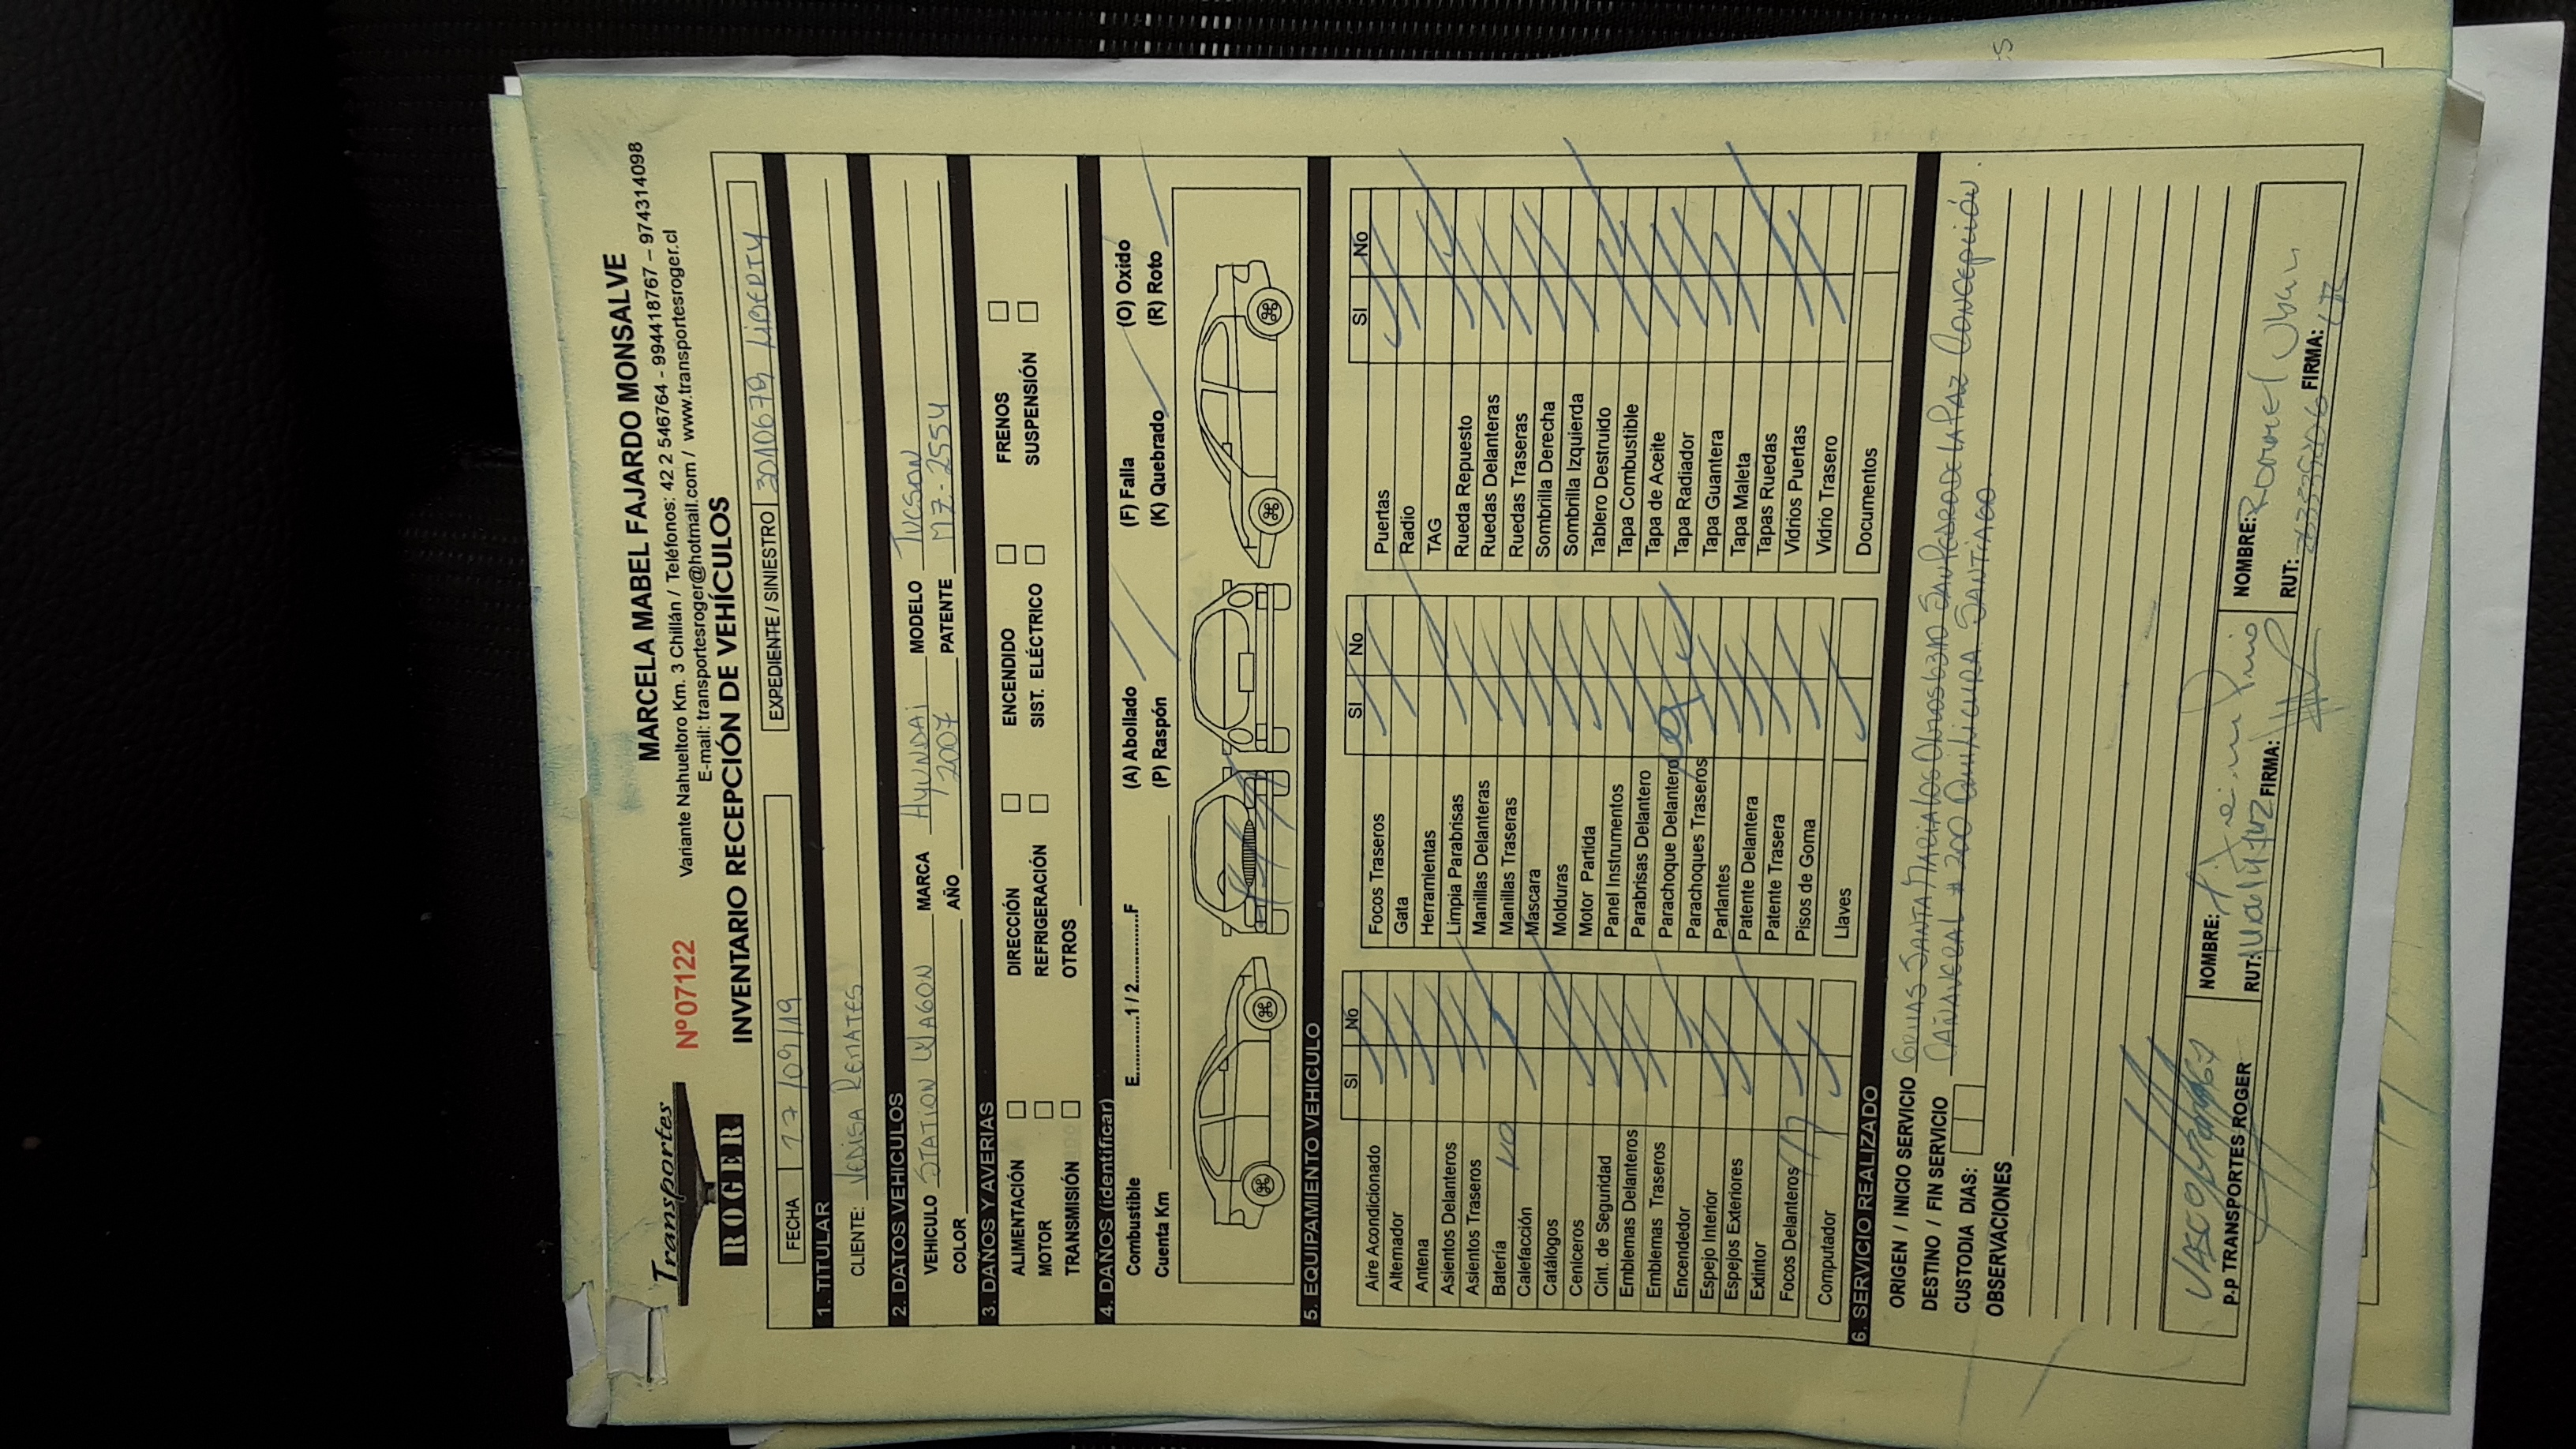 Transportes
ROGER
Nº 07122
MARCELA MABEL FAJARDO MONSALVE
Variante Nahueltoro Km. 3 Chillán / Teléfonos: 42 2 546764 - 994418767 – 974314098
E-mail: transportesroger@hotmail.com / www.transportesroger.cl
INVENTARIO RECEPCIÓN DE VEHÍCULOS
FECHA 17/09/19 EXPEDIENTE / SINIESTRO 3010679 LIBERTY
1. TITULAR
CLIENTE: VEDISA REMATES
2. DATOS VEHICULOS
VEHICULO STATION WAGON MARCA HYUNDAI MODELO TUCSON
COLOR AÑO 2007 PATENTE MZ-2554
3. DAÑOS Y AVERIAS
ALIMENTACIÓN DIRECCIÓN ENCENDIDO FRENOS
MOTOR REFRIGERACIÓN SIST. ELÉCTRICO SUSPENSIÓN
TRANSMISIÓN OTROS
4. DAÑOS (Identificar)
Combustible E.............1 / 2.............F (A) Abollado (F) Falla (O) Oxido
Cuenta Km (P) Raspón (K) Quebrado (R) Roto
5. EQUIPAMIENTO VEHICULO
SI No
Aire Acondicionado
Alternador
Antena
Asientos Delanteros
Asientos Traseros
Batería NO
Calefacción
Catálogos
Ceniceros
Cint. de Seguridad
Emblemas Delanteros
Emblemas Traseros
Encendedor
Espejo Interior
Espejos Exteriores
Extintor
Focos Delanteros
Computador
SI No
Focos Traseros
Gata
Herramientas
Limpia Parabrisas
Manillas Delanteras
Manillas Traseras
Mascara
Molduras
Motor Partida
Panel Instrumentos
Parabrisas Delantero
Parachoque Delantero
Parachoques Traseros
Parlantes
Patente Delantera
Patente Trasera
Pisos de Goma
Llaves
SI No
Puertas
Radio
TAG
Rueda Repuesto
Ruedas Delanteras
Ruedas Traseras
Sombrilla Derecha
Sombrilla Izquierda
Tablero Destruido
Tapa Combustible
Tapa de Aceite
Tapa Radiador
Tapa Guantera
Tapa Maleta
Tapas Ruedas
Vidrios Puertas
Vidrio Trasero
Documentos
6. SERVICIO REALIZADO
ORIGEN / INICIO SERVICIO GRUAS SANTA MARIA LOS SAN PEDRO DE LA PAZ CONCEPCIÓN.
DESTINO / FIN SERVICIO CAÑAVERAL # 200 QUILICURA. SANTIAGO.
CUSTODIA DIAS:
OBSERVACIONES
P.P TRANSPORTES ROGER
NOMBRE:
RUT: FIRMA:
NOMBRE:
RUT: FIRMA: